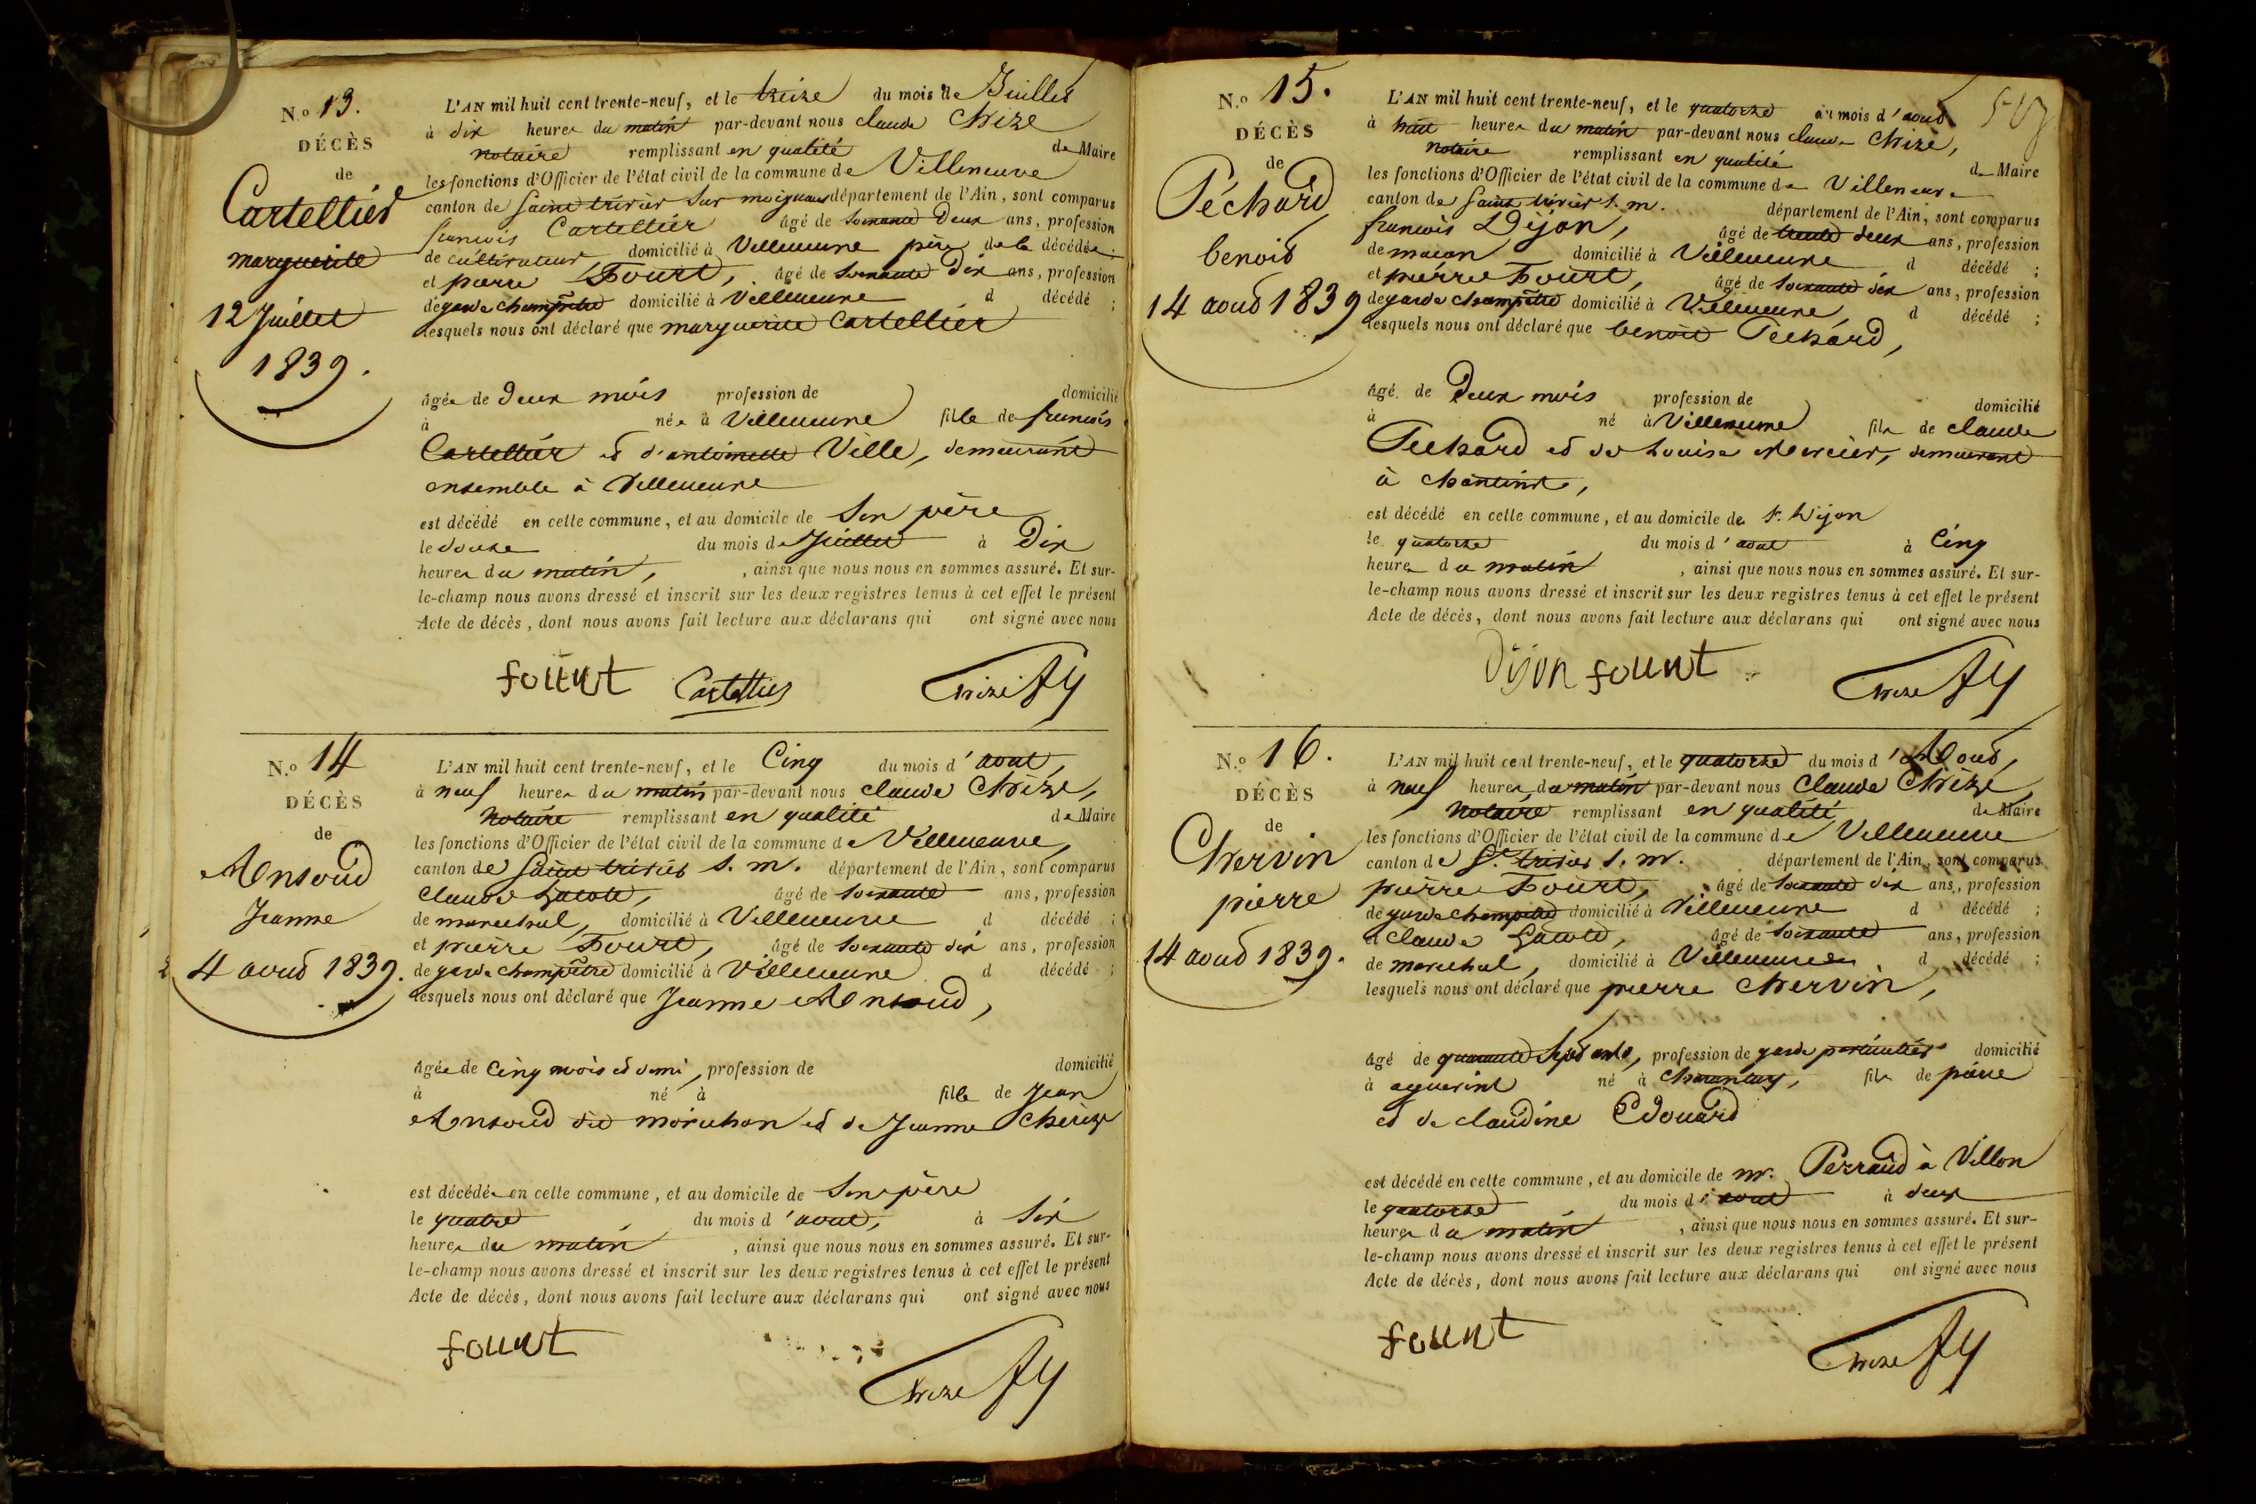 N.o 13.
DÉCÈS
de
Cartellier
marguerite
12 Juillet
1839.
L'AN mil huit cent trente-neuf, et le treize du mois de Juillet
à dix heures du matin par-devant nous claude Chize
notaire remplissant en qualité de Maire
les fonctions d'Officier de l'état civil de la commune de Villeneuve
canton de Saint trivier sur moignans département de l'Ain, sont comparus
francois Cartellier âgé de soixante Deux ans, profession
de cultivateur domicilié à Villeneuve père de la décédée ;
et pierre Fourt, âgé de soixante Dix ans, profession
de garde champêtre domicilié à Villeneuve d décédé ;
lesquels nous ont déclaré que marguerite Cartellier
âgée de Deux mois profession de domicilié
à née à Villeneuve fille de francois
Cartellier et d'antoinette Ville, demeurant
ensemble à Villeneuve
est décédé en cette commune, et au domicile de Son père
le douze du mois de Juillet à Dix
heures du matin, , ainsi que nous nous en sommes assuré. Et sur-
le-champ nous avons dressé et inscrit sur les deux registres tenus à cet effet le présent
Acte de décès, dont nous avons fait lecture aux déclarans qui ont signé avec nous
fourt Cartellier Chize
N.o 14
DÉCÈS
de
Jeanne
4 aout 1839.
L'AN mil huit cent trente-neuf, et le Cinq du mois d'aout,
à neuf heures du matin par-devant nous claude Chize,
notaire remplissant en qualité de Maire
les fonctions d'Officier de l'état civil de la commune de Villeneuve,
canton de Saint trivier s. m. département de l'Ain, sont comparus
claude Lacote, âgé de soixante ans, profession
de marechal, domicilié à Villeneuve d décédé ;
et pierre Fourt, âgé de soixante dix ans, profession
de garde champêtre domicilié à Villeneuve d décédé ;
lesquels nous ont déclaré que Jeanne
âgée de Cinq mois et demi, profession de domicilié
à né à fille de Jean
dit et de Jeanne
est décédée en cette commune, et au domicile de Son père
le quatre du mois d'aout, à Six
heures du matin , ainsi que nous nous en sommes assuré. Et sur-
le-champ nous avons dressé et inscrit sur les deux registres tenus à cet effet le présent
Acte de décès, dont nous avons fait lecture aux déclarans qui ont signé avec nous
fourt Chize
N.o 15.
DÉCÈS
de
Péchard
benoit
14 aout 1839
L'AN mil huit cent trente-neuf, et le quatorze du mois d'aout
à huit heures du matin par-devant nous claude Chize,
notaire remplissant en qualité de Maire
les fonctions d'Officier de l'état civil de la commune de Villeneuve
canton de Saint trivier s. m. département de l'Ain, sont comparus
francois Dijon, âgé de trente deux ans, profession
de macon domicilié à Villeneuve d décédé ;
et pierre Fourt, âgé de soixante dix ans, profession
de garde champêtre domicilié à Villeneuve, d décédé ;
lesquels nous ont déclaré que benoit Péchard,
âgé de Deux mois profession de domicilié
à né à Villeneuve fils de claude
Péchard et de Louise Mercier, demeurant
à
est décédé en cette commune, et au domicile de f. Dijon
le quatorze du mois d'aout à Cinq
heures du matin , ainsi que nous nous en sommes assuré. Et sur-
le-champ nous avons dressé et inscrit sur les deux registres tenus à cet effet le présent
Acte de décès, dont nous avons fait lecture aux déclarans qui ont signé avec nous
Dijon fourt Chize
N.o 16.
DÉCÈS
de
Chervin
pierre
14 aout 1839.
L'AN mil huit cent trente-neuf, et le quatorze du mois d'Aout,
à neuf heures du matin par-devant nous Claude Chize,
Notaire remplissant en qualité de Maire
les fonctions d'Officier de l'état civil de la commune de Villeneuve
canton de St. trivier s. m. département de l'Ain, sont comparus
pierre Fourt, âgé de soixante dix ans, profession
de garde champêtre domicilié à Villeneuve d décédé ;
et claude Lacote, âgé de soixante ans, profession
de marechal, domicilié à Villeneuve d décédé ;
lesquels nous ont déclaré que pierre Chervin,
âgé de quarante Sept ans, profession de garde particulier domicilié
à né à Charentay, fils de pierre
et de claudine Edouard
est décédé en cette commune, et au domicile de mr. Perraud à Villon
le quatorze du mois d'aout à deux
heures du matin , ainsi que nous nous en sommes assuré. Et sur-
le-champ nous avons dressé et inscrit sur les deux registres tenus à cet effet le présent
Acte de décès, dont nous avons fait lecture aux déclarans qui ont signé avec nous
fourt Chize